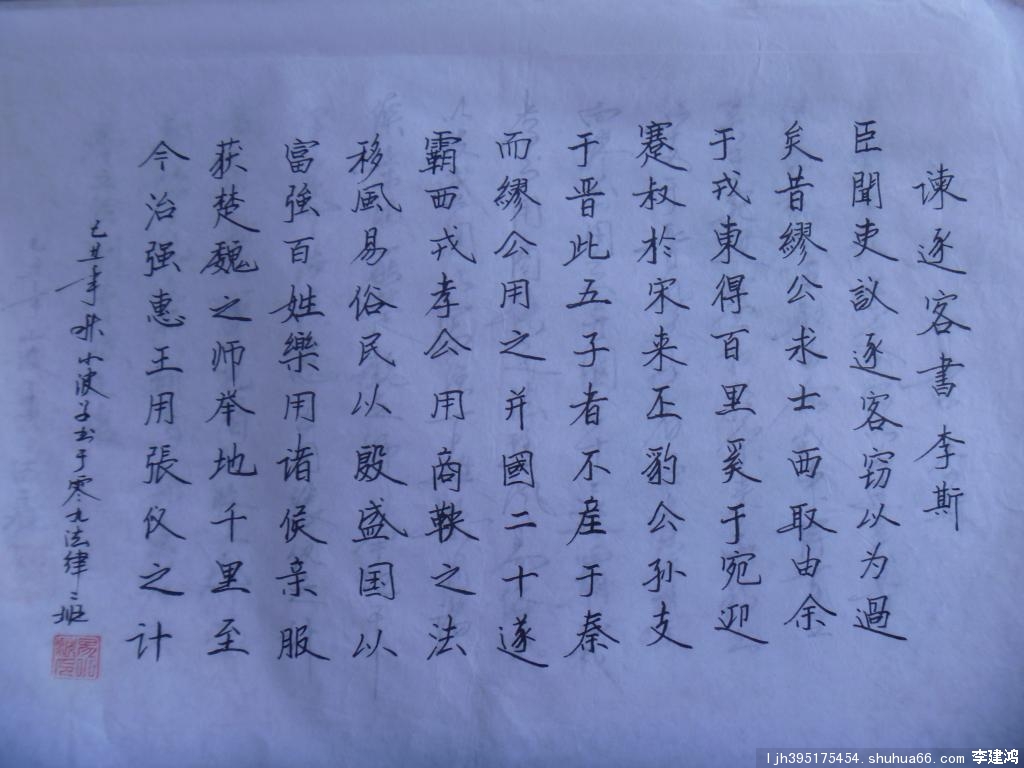 谏逐客書李斯
臣聞吏议逐客窃以为過
矣昔繆公求士西取由余
于戎東得百里奚于宛迎
蹇叔於宋来丕豹公孙支
于晋此五子者不产于秦
而繆公用之并國二十遂
霸西戎孝公用商鞅之法
移風易俗民以殷盛国以
富强百姓樂用诸侯亲服
获楚魏之师举地千里至
今治强惠王用張仪之计
己丑年秋小波书于零九法律二班
ljh395175454.shuhua66.com 李建鸿